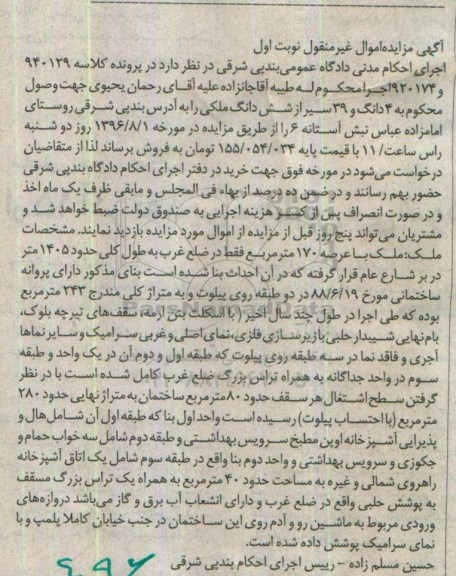 آگهی مزایده اموال غیرمنقول نوبت اول
اجرای احکام مدنی دادگاه عمومی بندپی شرقی در نظر دارد در پرونده کلاسه ۹۴۰۱۲۹
و ۹۲۰۱۷۴ اجرا محکوم له طیبه آقاجانزاده علیه آقای رحمان یحیوی جهت وصول
محکوم به ۴ دانگ و ۳۹ سیر از شش دانگ ملکی را به آدرس بندپی شرقی روستای
امامزاده عباس نبش آستانه ۶ را از طریق مزایده در مورخه ۱۳۹۶/۸/۱ روز دو شنبه
راس ساعت ۱۱/ با قیمت پایه ۱۵۵/۰۵۴/۰۳۴ تومان به فروش برساند لذا از متقاضیان
درخواست می‌شود در مورخه فوق جهت خرید در دفتر اجرای احکام دادگاه بندپی شرقی
حضور بهم رسانند و در ضمن ده درصد از بهاء فی المجلس و مابقی ظرف یک ماه اخذ
و در صورت انصراف پس از کسر هزینه اجرایی به صندوق دولت ضبط خواهد شد و
مشتریان می‌توانند پنج روز قبل از مزایده از اموال مورد مزایده بازدید نمایند. مشخصات
ملک: ملک با عرصه ۱۷۰ مترمربع فقط در ضلع غرب به طول کلی حدود ۱۴۰۵ متر
در بر شارع عام قرار گرفته که در آن احداث بنا شده است بنای مذکور دارای پروانه
ساختمانی مورخ ۸۸/۶/۱۹ در دو طبقه روی پیلوت و به متراژ کلی مندرج ۲۴۳ مترمربع
بوده که طی اجرا در طول چند سال اخیر (با اسکلت بتن آرمه، سقف‌های تیرچه بلوک،
بام نهایی شیبدار حلبی با زیرسازی فلزی، نمای اصلی و غربی سرامیک و سایر نماها
آجری و فاقد نما در سه طبقه روی پیلوت که طبقه اول و دوم آن در یک واحد و طبقه
سوم در واحد جداگانه به همراه تراس بزرگ ضلع غرب کامل شده است با در نظر
گرفتن سطح اشتغال هر سقف حدود ۸۰ مترمربع ساختمان به متراژ نهایی حدود ۲۸۰
مترمربع (با احتساب پیلوت) رسیده است واحد اول بنا که طبقه اول آن شامل هال و
پذیرایی آشپزخانه اوپن مطبخ سرویس بهداشتی و طبقه دوم شامل سه خواب حمام و
جکوزی و سرویس بهداشتی و واحد دوم بنا واقع در طبقه سوم شامل یک اتاق آشپزخانه
راهروی شمالی و غیره به مساحت حدود ۴۰ مترمربع به همراه یک تراس بزرگ مسقف
به پوشش حلبی واقع در ضلع غرب و دارای انشعاب آب برق و گاز می‌باشد دروازه‌های
ورودی مربوط به ماشین رو و آدم روی این ساختمان در جنب خیابان کاملا پلمپ و با
نمای سرامیک پوشش داده شده است.
حسین مسلم زاده - رییس اجرای احکام بندپی شرقی